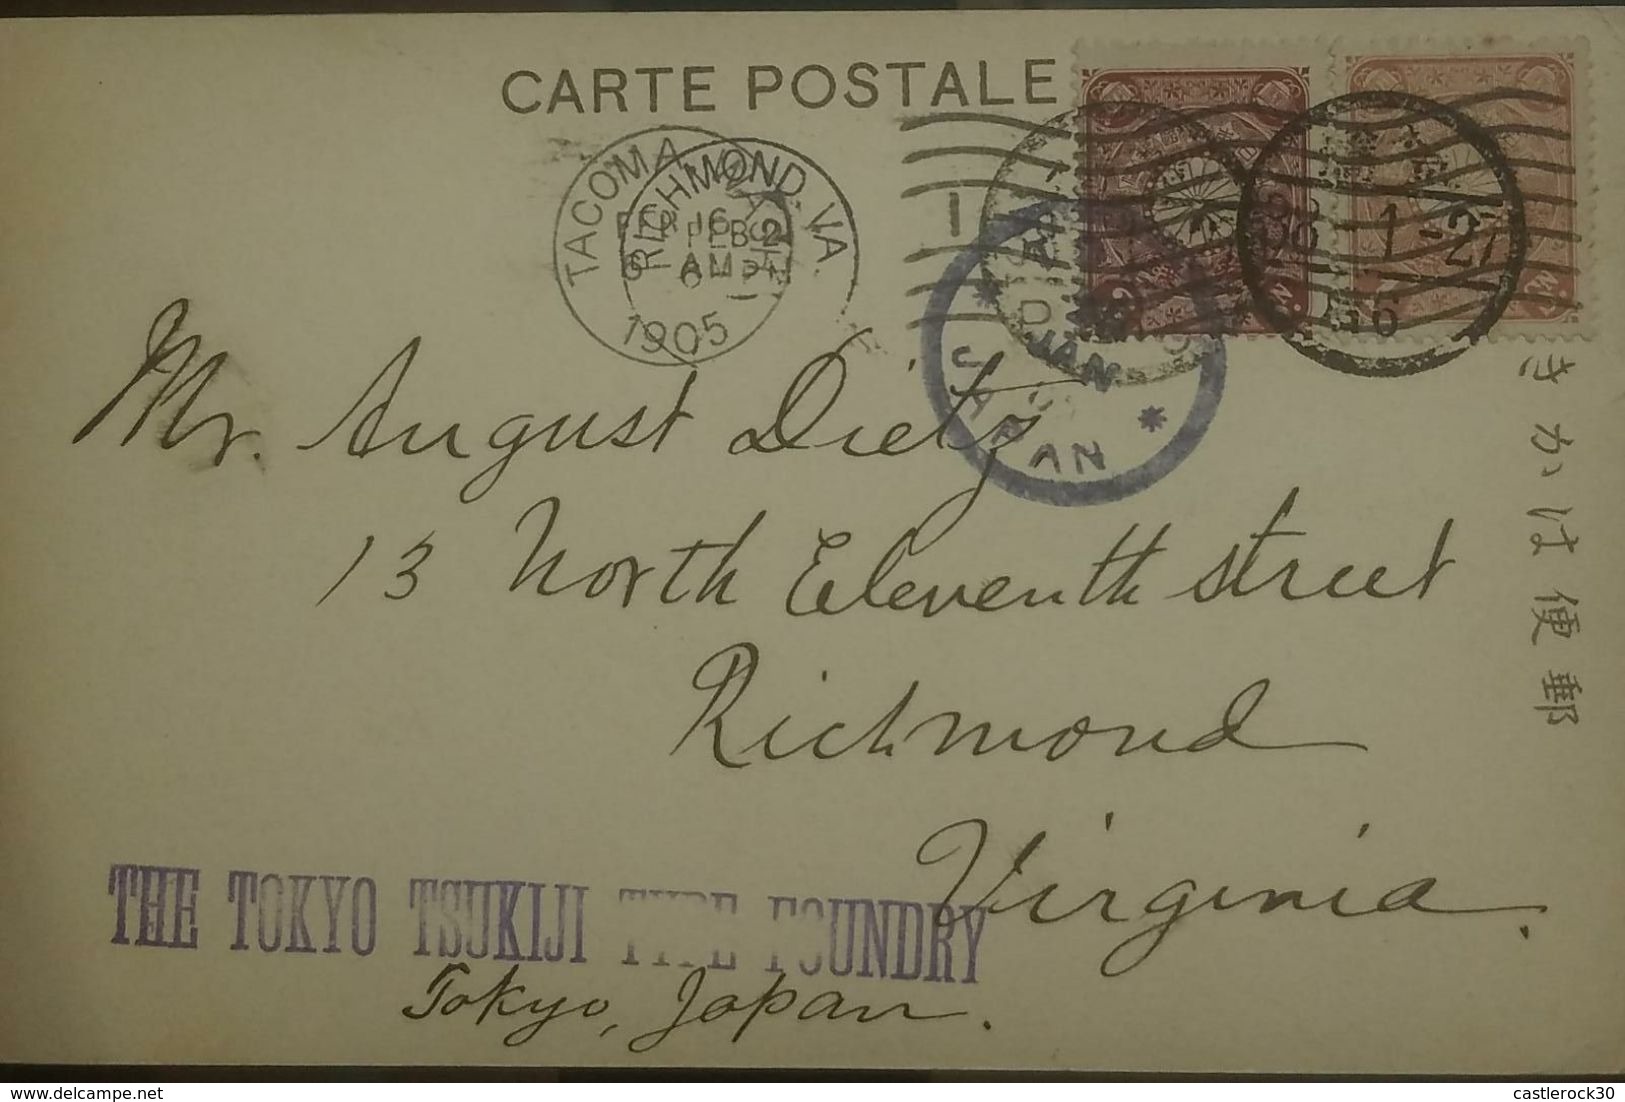 CARTE POSTALE
TACOMA
FEB 16
AM
1905
RICHMOND, VA.
FEB 2
JAN
JAPAN
1-21
きかは便郵
Mr. August Dietz
13 North Eleventh Street
Richmond
Virginia.
THE TOKYO TSUKIJI TYPE FOUNDRY
Tokyo, Japan.
www.delcampe.net
castlerock30